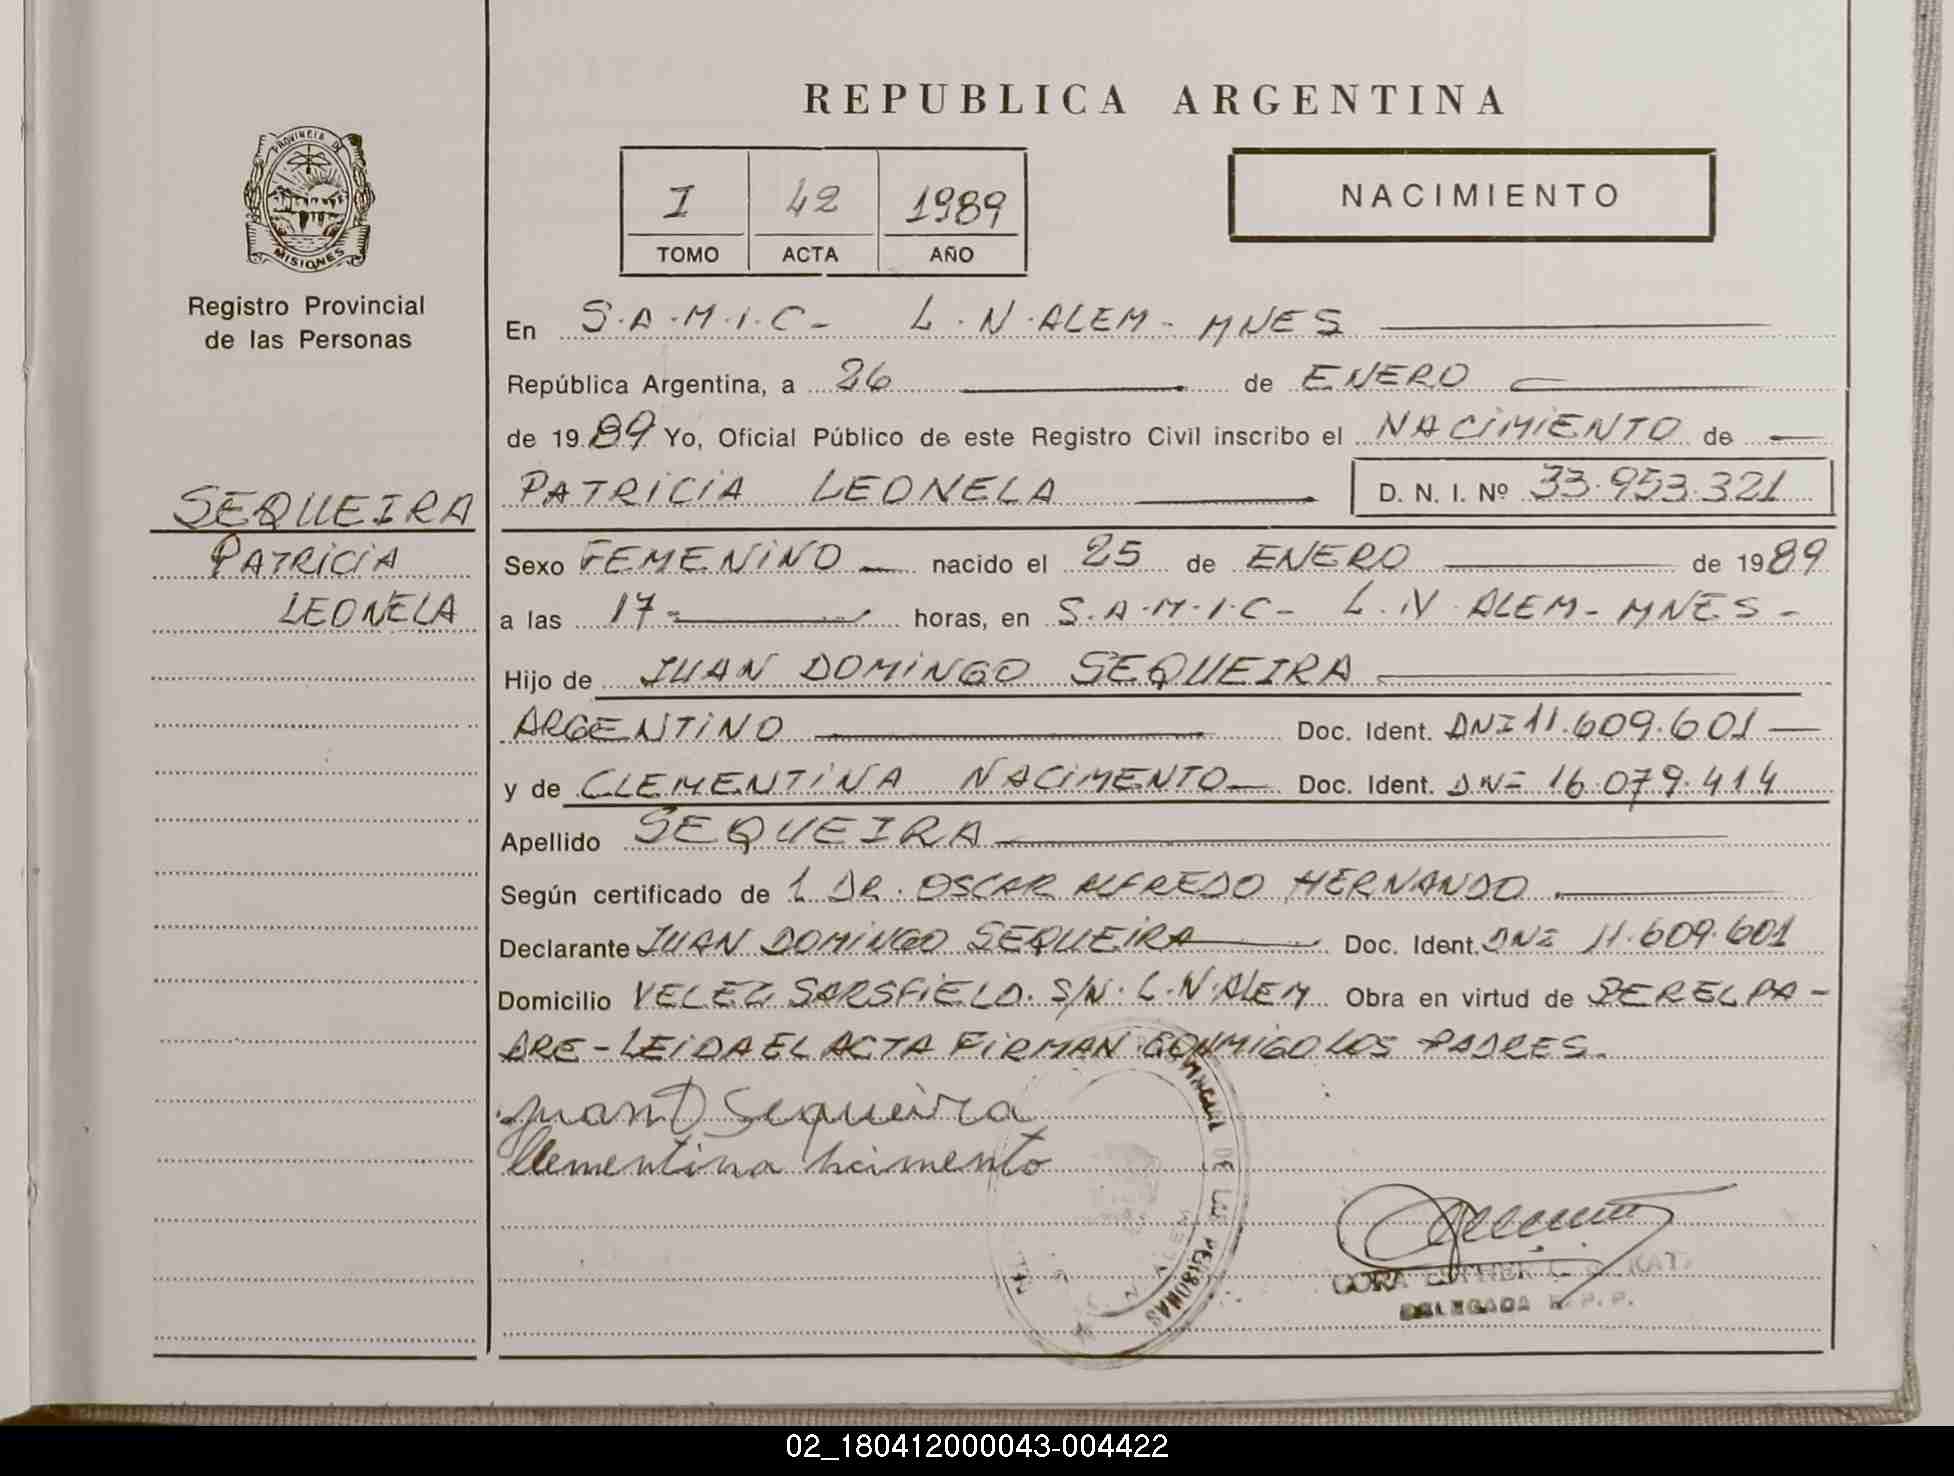 REPUBLICA ARGENTINA
PROVINCIA DE
MISIONES
Registro Provincial
de las Personas
I 42 1989
TOMO ACTA AÑO
NACIMIENTO
En S.A.M.I.C- L.N.ALEM- MNES
República Argentina, a 26 de ENERO
de 1989 Yo, Oficial Público de este Registro Civil inscribo el NACIMIENTO de
PATRICIA LEONELA D. N. I. Nº 33.953.321
SEQUEIRA
PATRICIA
LEONELA
Sexo FEMENINO nacido el 25 de ENERO de 1989
a las 17 horas, en S.A.M.I.C- L.N ALEM- MNES-
Hijo de JUAN DOMINGO SEQUEIRA
ARGENTINO Doc. Ident. DNI 11.609.601
y de CLEMENTINA NACIMENTO Doc. Ident. DNI 16.079.414
Apellido SEQUEIRA
Según certificado de 1 DR. OSCAR ALFREDO HERNANDO
Declarante JUAN DOMINGO SEQUEIRA Doc. Ident. DNI 11.609.601
Domicilio VELEZ SARSFIELD. S/N. L.N.ALEM Obra en virtud de SER EL PA-
DRE - LEIDA EL ACTA FIRMAN CONMIGO LOS PADRES.
Juan D Sequeira
Clementina
DE LAS PERSONAS
N. ALEM
ESTHER
DELEGADA R.P.P.
02_180412000043-004422